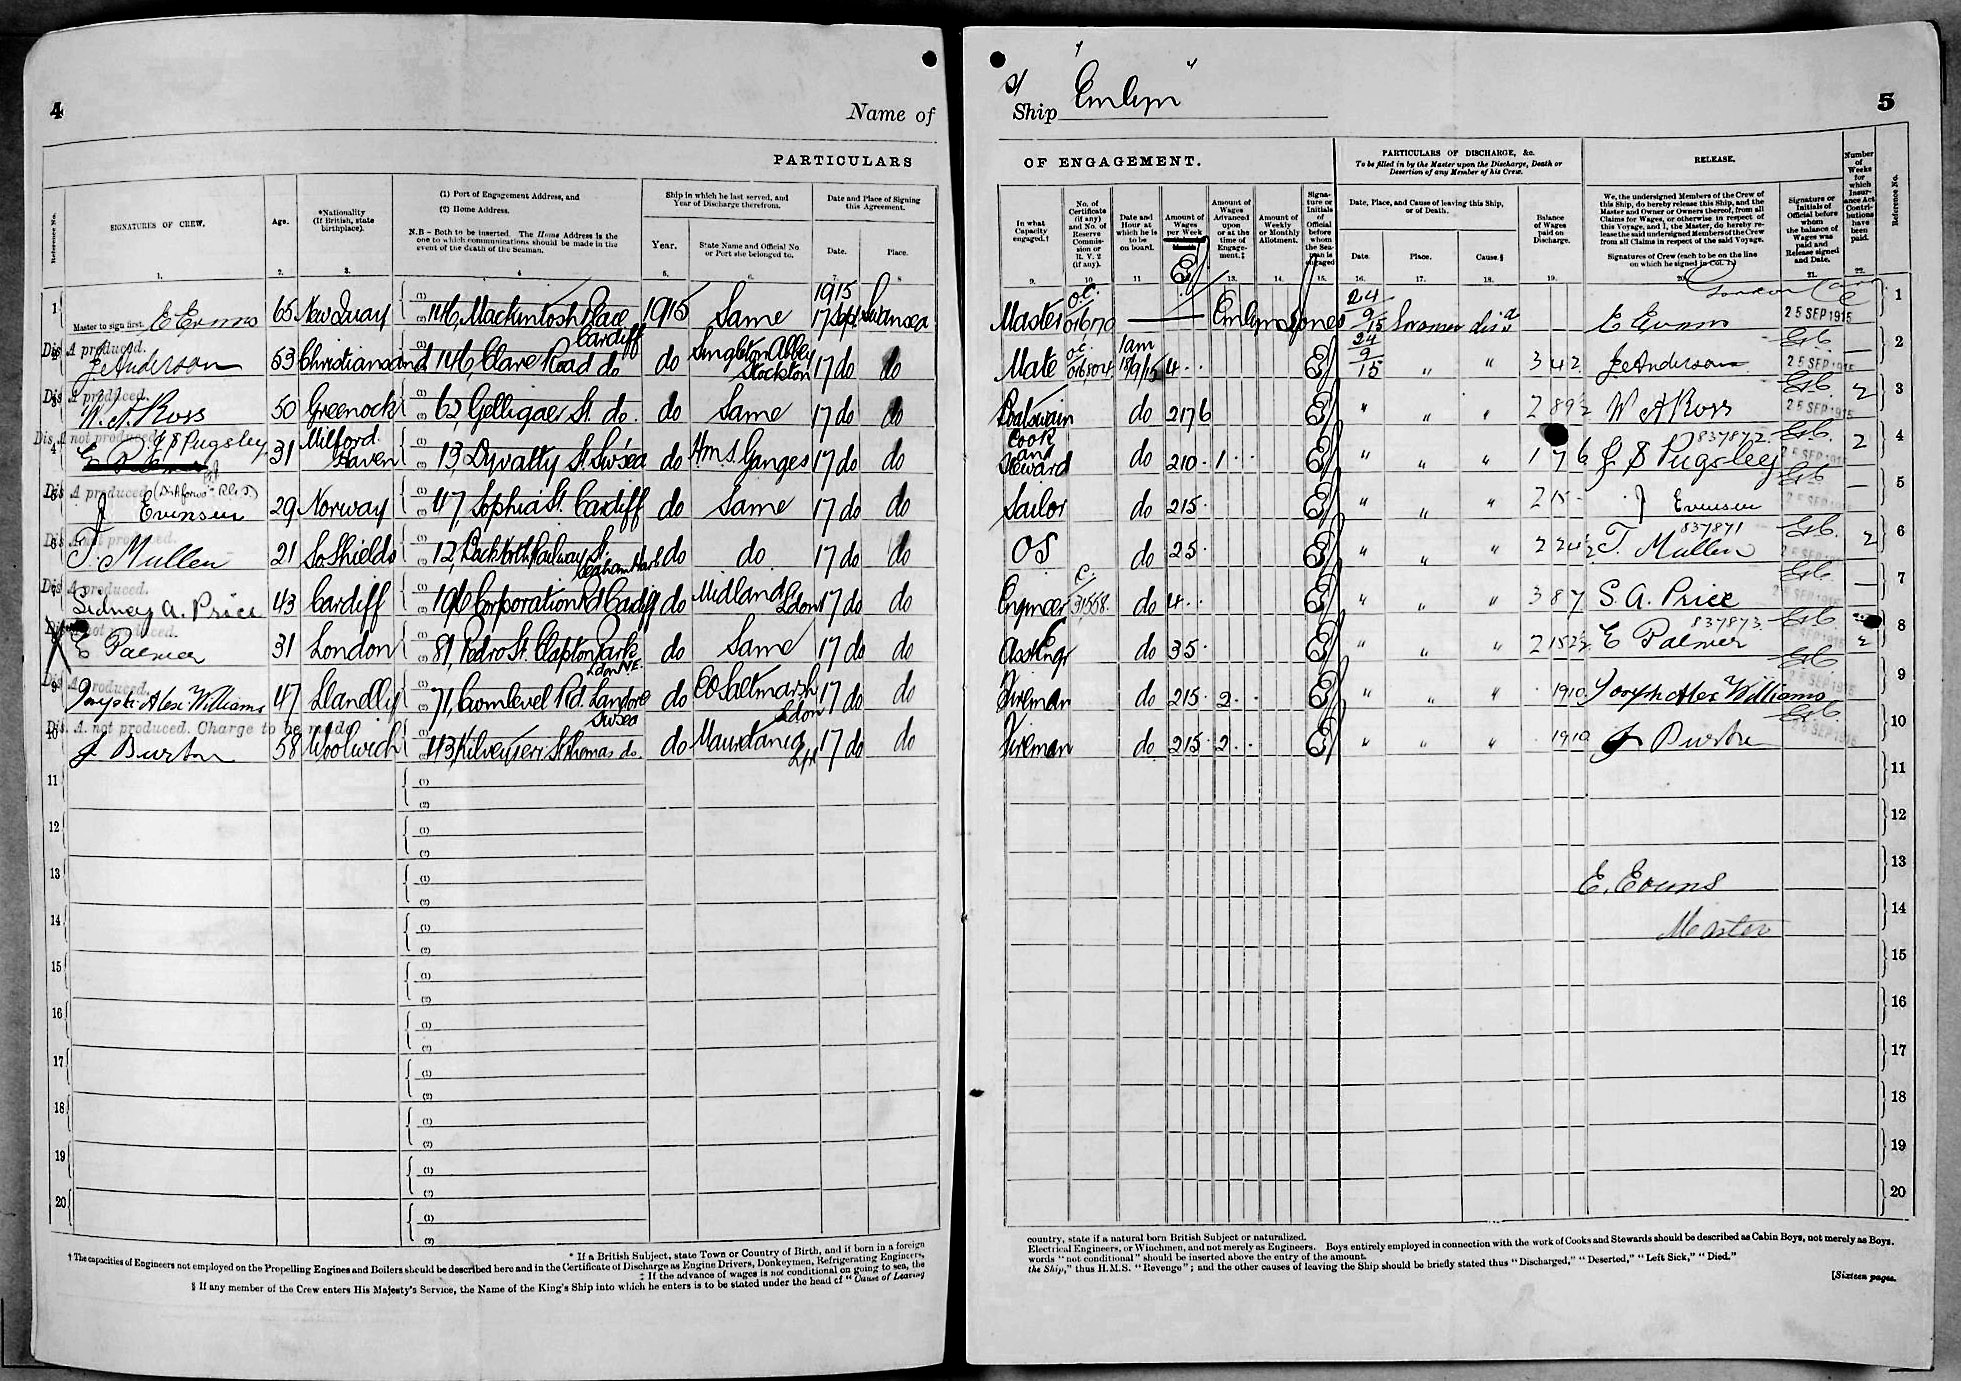 4
Name of
PARTICULARS
Reference No.
SIGNATURES OF CREW.
Age.
*Nationality
(If British, state
birthplace).
(1) Port of Engagement Address, and
(2) Home Address.
N.B - Both to be inserted. The Home Address is the
one to which communications should be made in the
event of the death of the Seaman.
Ship in which he last served, and
Year of Discharge therefrom.
Year.
State Name and Official No.
or Port she belonged to.
Date and Place of Signing
this Agreement.
Date.
Place.
1. 2. 3. 4 5. 6. 7. 8
1 Master to sign first. E Evans 65 New Quay 146, Mackintosh Place Cardiff 1915 Same 1915 17 Sept Swansea
Dis A produced.
2 J Anderson 53 Christiansand 146, Clare Road do do Singleton Abbey Stockton 17 do do
Dis A produced.
3 W. A. Ross 50 Greenock 62, Gelligaer St. do. do Same 17 do do
Dis. A not produced
4 J S Pugsley 31 Milford Haven 13, Dyvatty St. Sw'sea do H.m.s. Ganges 17 do do
Dis A produced
5 J Evensen 29 Norway 47, Sophia St. Cardiff do Same 17 do do
Dis A not produced.
6 T. Mullen 21 So Shields 12, Railway St. do do. 17 do do
Dis A produced.
7 Sidney A. Price 43 Cardiff 196 Corporation Rd Cardiff do Midland Ldon 17 do do
not produced.
8 E Palmer 31 London 81, Pedro St. Clapton Park Ldon N.E. do Same 17 do do
Dis A produced.
9 Joseph Alex Williams 47 Llanelly 71, Cwmlevel Rd. Landore Sw'sea do Saltmarsh Ldon 17 do do
Dis. A. not produced. Charge to be made
10 J Burton 58 Woolwich 43, Kilvey Terr St Thomas do. do Mauretania Lpl 17 do do
11
12
13
14
15
16
17
18
19
20
* If a British Subject, state Town or Country of Birth, and if born in a foreign
† The capacities of Engineers not employed on the Propelling Engines and Boilers should be described here and in the Certificate of Discharge as Engine Drivers, Donkeymen, Refrigerating Engineers,
‡ If the advance of wages is not conditional on going to sea, the
§ If any member of the Crew enters His Majesty's Service, the Name of the King's Ship into which he enters is to be stated under the head of "Cause of Leaving
Ship "Emlyn"
5
OF ENGAGEMENT.
PARTICULARS OF DISCHARGE, &c.
To be filled in by the Master upon the Discharge, Death or
Desertion of any Member of his Crew.
RELEASE.
Number
of
Weeks
for
which
Insur-
ance Act
Contri-
butions
have
been
paid.
Reference No.
In what
Capacity
engaged.†
No. of
Certificate
(if any)
and No. of
Reserve
Commis-
sion or
R. V. 2
(if any).
Date and
Hour at
which he is
to be
on board.
Amount of
Wages
per Week
Amount of
Wages
Advanced
upon
or at the
time of
Engage-
ment.‡
Amount of
Weekly
or Monthly
Allotment.
Signa-
ture or
Initials
of
Official
before
whom
the Sea-
man is
engaged
Date, Place, and Cause of leaving this Ship,
or of Death.
Date.
Place.
Cause.§
Balance
of Wages
paid on
Discharge.
We, the undersigned Members of the Crew of
this Ship, do hereby release this Ship, and the
Master and Owner or Owners thereof, from all
Claims for Wages, or otherwise in respect of
this Voyage, and I, the Master, do hereby re-
lease the said undersigned Members of the Crew
from all Claims in respect of the said Voyage.
Signatures of Crew (each to be on the line
on which he signed in Col. 1.)
Signature or
Initials of
Official before
whom
the balance of
Wages was
paid and
Release signed
and Date.
9. 10 11 13. 14. 15. 16. 17. 18. 19. 20. 21. 22.
Master O.C. 016770 Emlyn Jones 24/9/15 Swansea disd E Evans 25 SEP 1915 1
Mate O.C. 1am 18/9/15 4 . . 24/9/15 " " 3 4 2 J Anderson 25 SEP 1915 2
Boatswain do 2 17 6 " " " 2 8 9½ W A Ross 25 SEP 1915 2 3
Cook and Steward do 2 10 . 1 . . " " " 1 7 6 837872 J S Pugsley 2 4
Sailor do 2 15 . " " " 2 15 - J Evensen 5
OS do 2 5 . " " " 2 2 4½ 837871 T. Mullen 2 6
Engineer C 31558. do 4 . . " " " 3 8 7 S. A. Price 7
Asst Engr do 3 5 . " " " 2 15 2½ 837873 E Palmer 2 8
Fireman do 2 15 . 2 . . " " " . 19 10 Joseph Alex Williams 9
Fireman do 2 15 . 2 . . " " " . 19 10 J Burton 10
11
12
13
E. Evans
14
Master
15
16
17
18
19
20
country, state if a natural born British Subject or naturalized.
Electrical Engineers, or Winchmen, and not merely as Engineers. Boys entirely employed in connection with the work of Cooks and Stewards should be described as Cabin Boys, not merely as Boys.
words "not conditional" should be inserted above the entry of the amount.
the Ship," thus H.M.S. "Revenge"; and the other causes of leaving the Ship should be briefly stated thus "Discharged," "Deserted," "Left Sick," "Died."
[Sixteen pages.